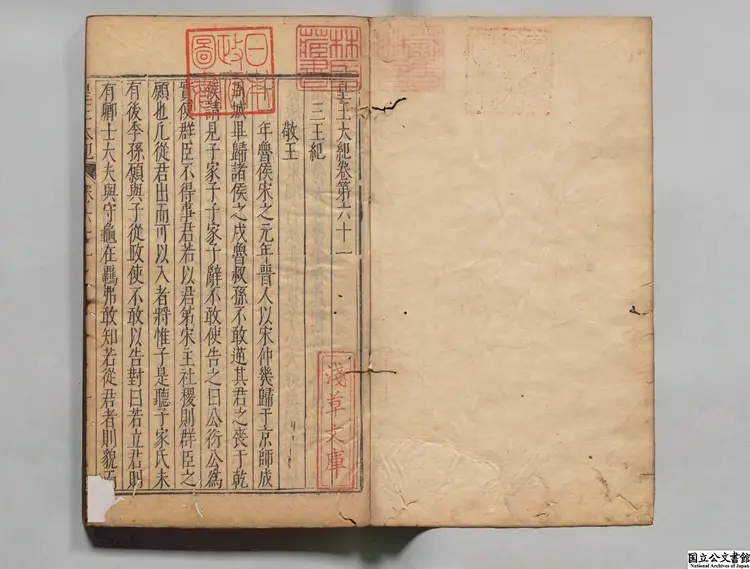 皇王大紀卷第六十一
三王紀
敬王
十一年魯侯宋之元年晉人以宋仲幾歸于京師成
周城畢歸諸侯之戍魯叔孫不敢逆其君之喪于乾
侯請見子家子子家子辭不敢使告之曰公衍公爲
實使群臣不得事君若以君第宋主社稷則群臣之
願也凡從君出而可以入者將惟子是聽子家氏未
有後季孫願與子從政使不敢以告對曰若立君則
有卿士大夫與守龜在羈弗敢知若從君者則貌而
日本政府圖書
林氏藏書
淺草文庫
国立公文書館
National Archives of Japan